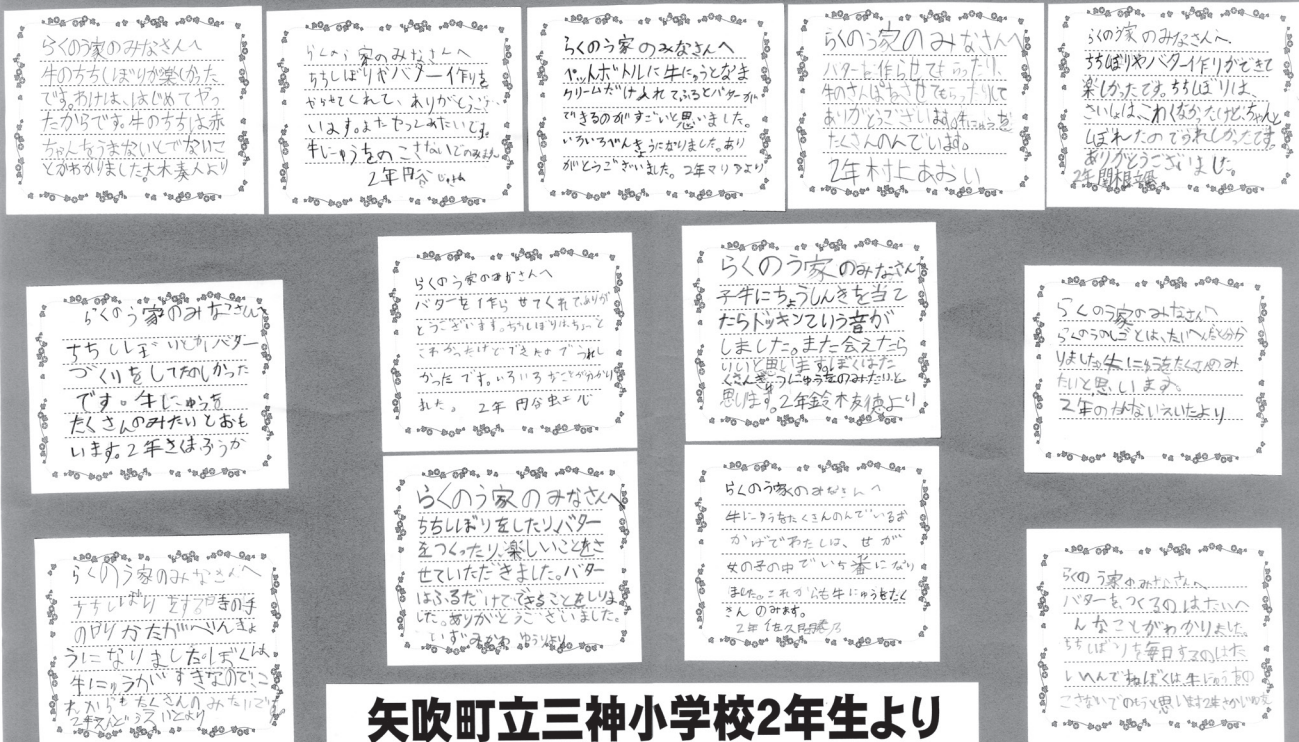 らくのう家のみなさんへ
牛のちちしぼりが楽しかった
です。わけは、はじめてやっ
たからです。牛のちちは赤
ちゃんをうまないとでないこ
とがわかりました大木奏人より
らくのう家のみなさんへ
ちちしぼりやバター作りを
やらせてくれて、ありがとうござ
います。またやってみたいです。
牛にゅうをのこさないでのみます。
2年円谷
らくのう家のみなさんへ
ペットボトルに牛にゅうとなま
クリームだけ入れてふるとバターが
できるのがすごいと思いました。
いろいろべんきょうになりました。あり
がとうございました。2年マリアより
らくのう家のみなさんへ
バターを作らせてもらったり、
牛のさんぽをさせてもらったりして
ありがとうございます。牛にゅうを
たくさんのんでいます。
2年村上あおい
らくのう家のみなさんへ
ちちしぼりやバター作りができて
楽しかったです。ちちしぼりは、
さいしょは、こわくなかったけど、ちゃんと
しぼれたのでうれしかったです。
ありがとうございました。
2年関根
らくのう家のみなさんへ
ちちしぼりとかバター
づくりをしてたのしかった
です。牛にゅうを
たくさんのみたいとおも
います。2年
らくのう家のみなさんへ
バターを作らせてくれてありが
とうございます。ちちしぼりは、ちょっと
こわかったけどできたのでうれし
かったです。いろいろなことが分かり
ました。2年円谷
らくのう家のみなさんへ
子牛にちょうしんきを当て
たらドッキンていう音が
しました。また会えたら
いいと思います。ぼくはた
くさんぎゅうにゅうをのみたいと
思います。2年鈴木友徳より
らくのう家のみなさんへ
らくのうのしごとは、たいへんだと分か
りました。牛にゅうをたくさんのみ
たいと思います。
2年のかないえいたより
らくのう家のみなさんへ
ちちしぼりをしたり、バター
をつくったり、楽しいことをさ
せていただきました。バター
はふるだけでできることをしりま
した。ありがとうございました。
ゆうりより
らくのう家のみなさんへ
牛にゅうをたくさんのんでいるお
かげでわたしは、せが
女の子の中でいち番になり
ました。これからも牛にゅうをたく
さんのみます。
2年佐久間
らくのう家のみなさんへ
ちちしぼりをする時の手
のやりかたがべんきょ
うになりました。ぼくは
牛にゅうがすきなのでこ
れからもたくさんのみたいです
2年
らくのう家のみなさんへ
バターをつくるのはたいへ
んなことがわかりました。
ちちしぼりを毎日するのはた
いへんですね。ぼくは牛にゅうをの
こさないでのもうと思います2年
矢吹町立三神小学校2年生より